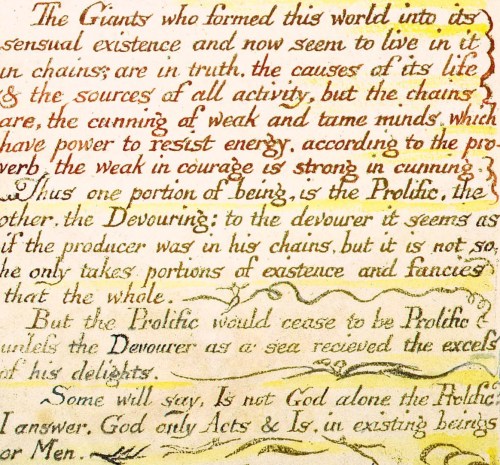 The Giants who formed this world into its
sensual existence and now seem to live in it
in chains; are in truth. the causes of its life
& the sources of all activity, but the chains
are, the cunning of weak and tame minds. which
have power to resist energy. according to the pro-
verb, the weak in courage is strong in cunning.
Thus one portion of being, is the Prolific. the
other. the Devouring: to the devourer it seems as
if the producer was in his chains, but it is not so,
he only takes portions of existence and fancies
that the whole.
But the Prolific would cease to be Prolific
unless the Devourer as a sea recieved the excess
of his delights.
Some will say, Is not God alone the Prolific?
I answer. God only Acts & Is, in existing beings
or Men.